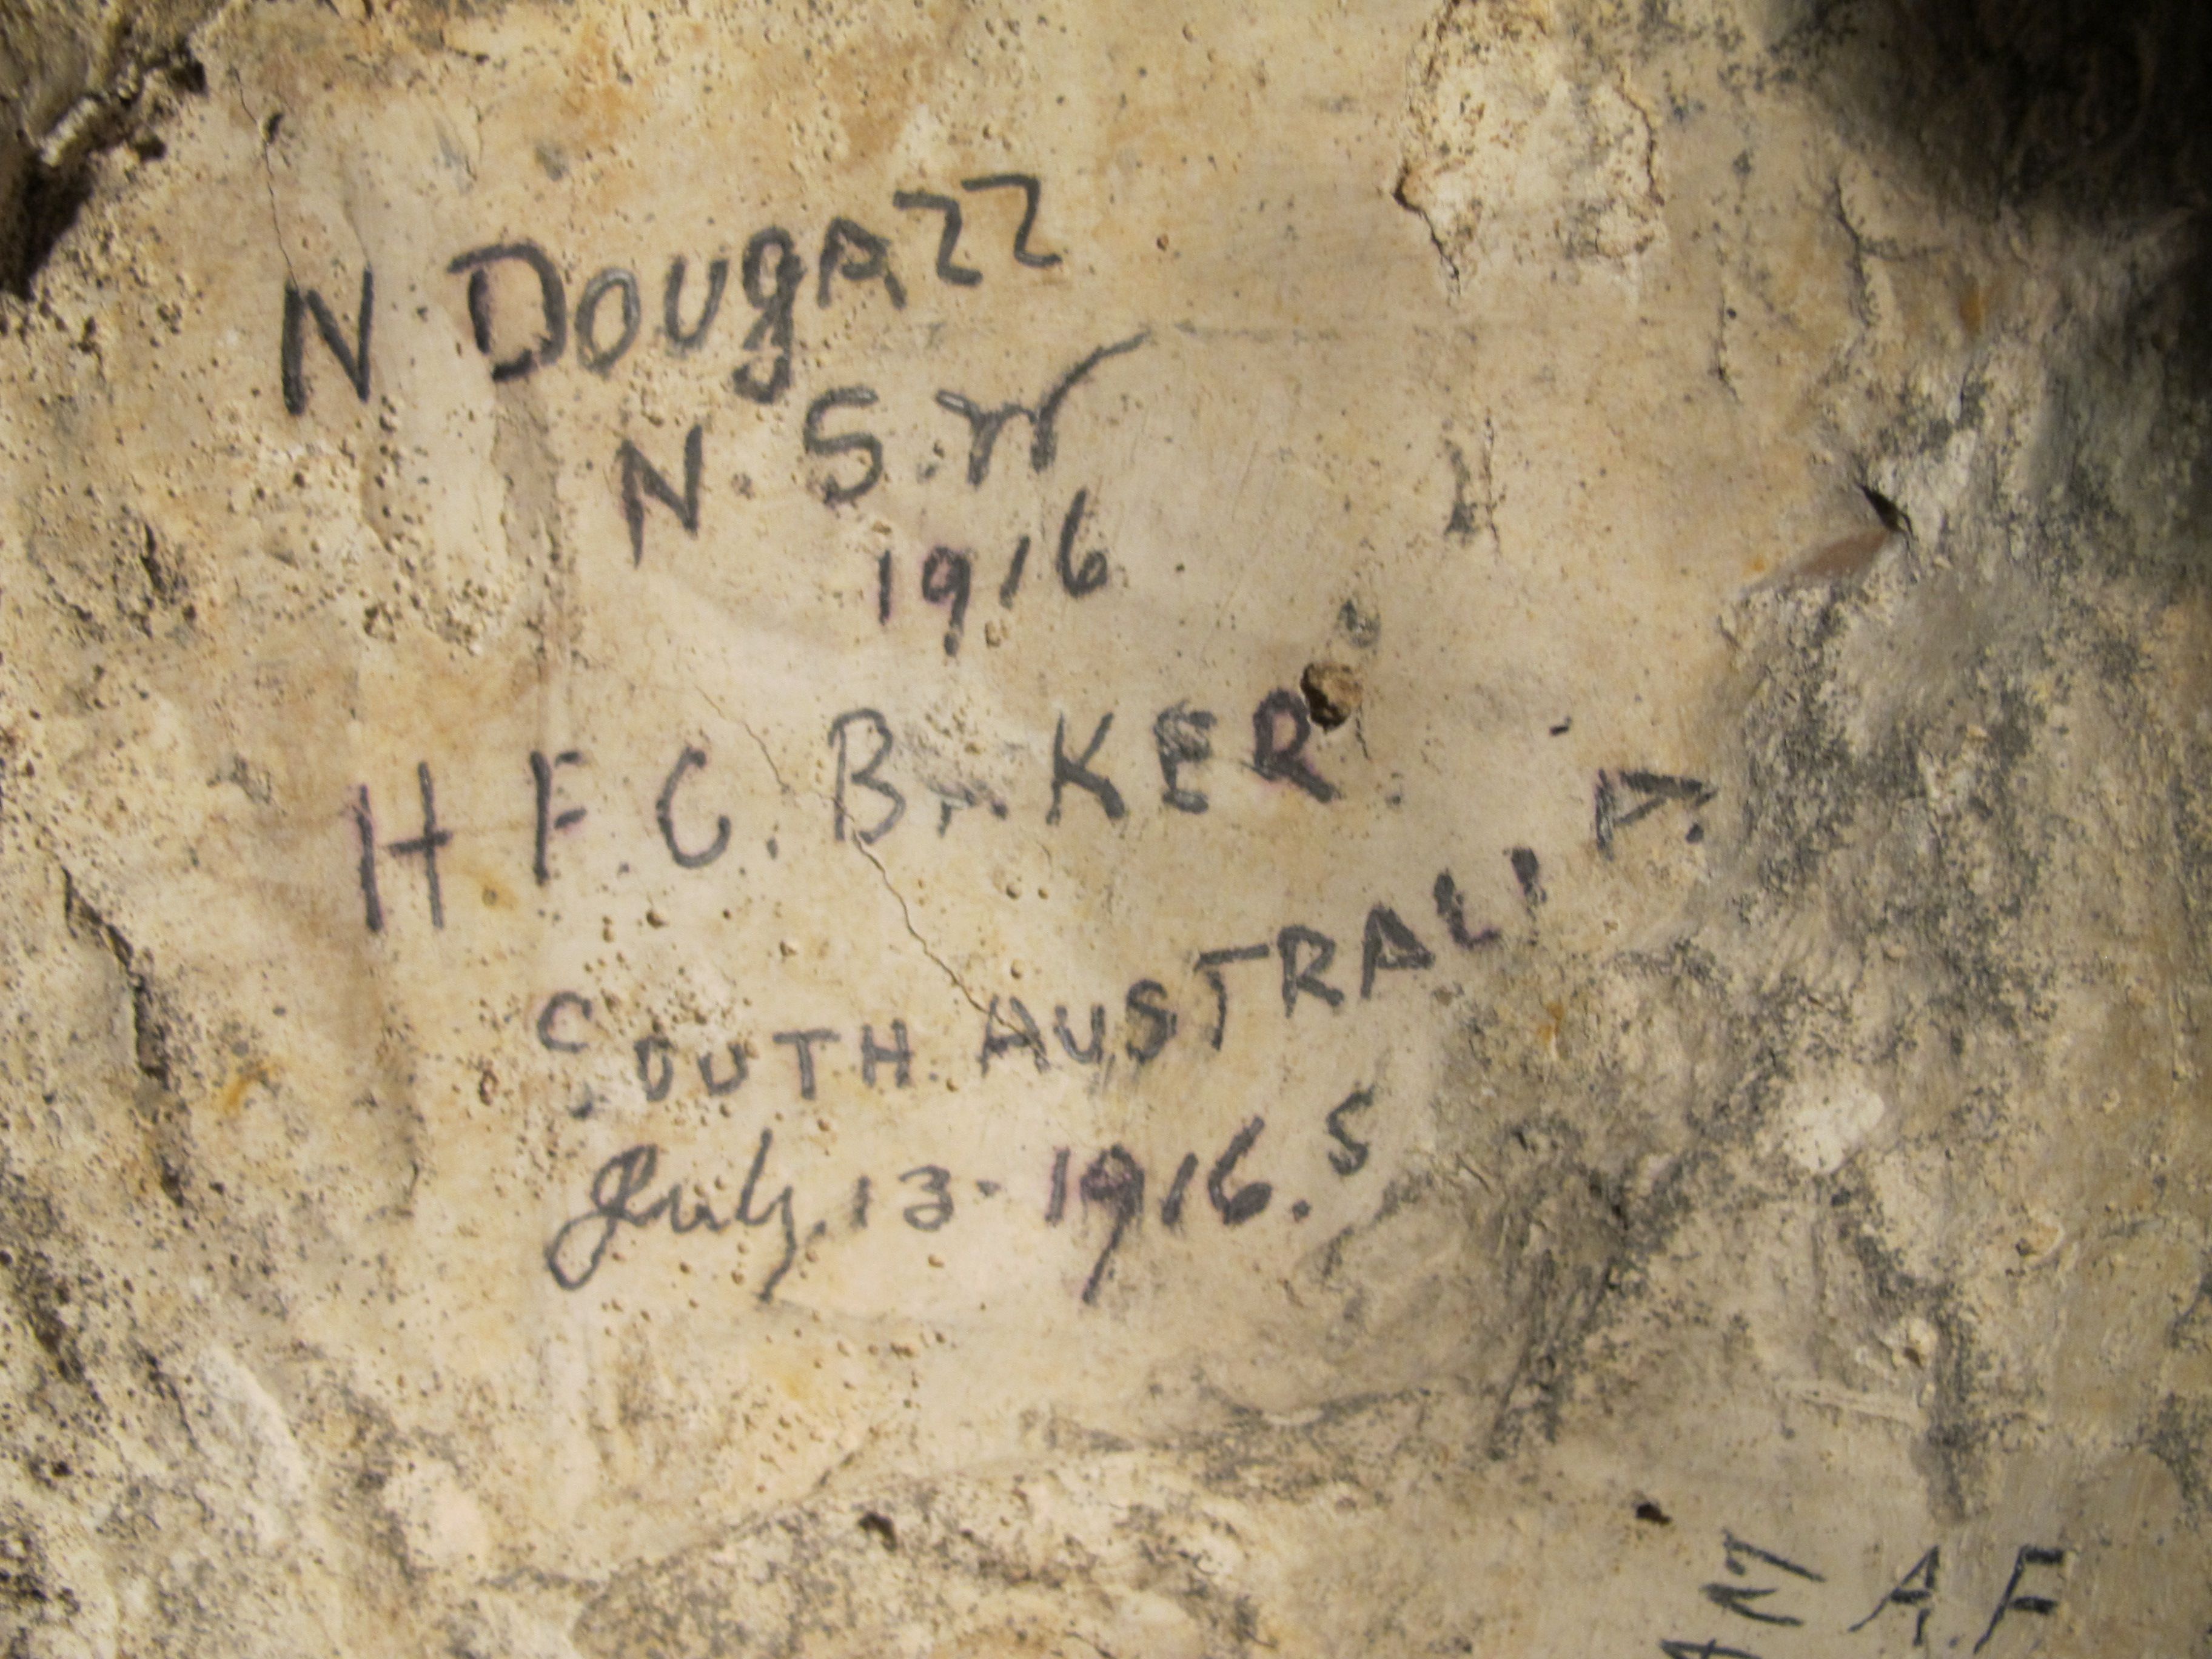 N DOUgAZZ
N. S. W
1916
H F. C. BAKER.
SOUTH AUSTRALIA.
July. 13 - 1916. S
A. F